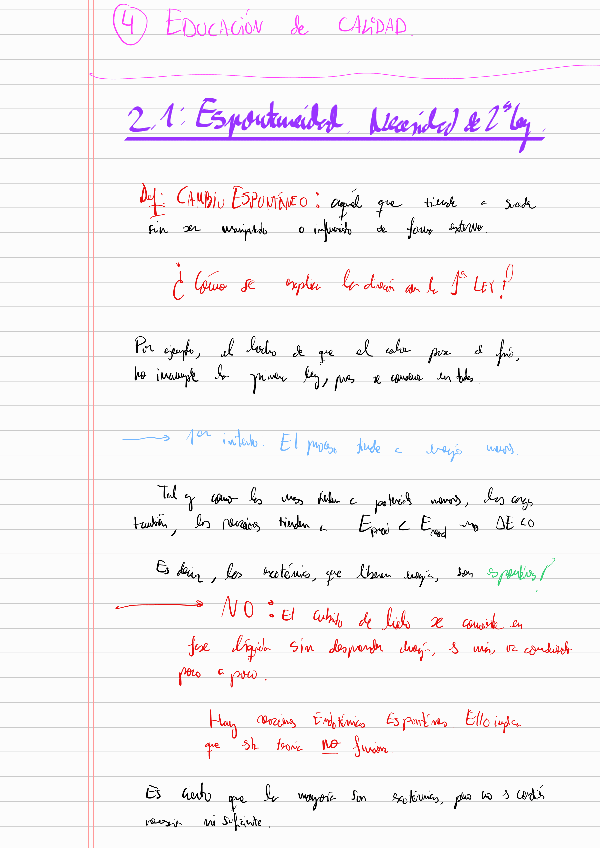 4 EDUCACIÓN de CALIDAD.
2.1: Espontaneidad. Necesidad de 2ª Ley.
Def: CAMBIO ESPONTÁNEO: aquél que tiende a suceder
sin ser manipulado o influenciado de forma externa.
¿Cómo se explica la dirección con la 1ª LEY?
Por ejemplo, el hecho de que el calor pase al frío,
no incumple la primera ley, pues se conserva en todo
→ 1er intento. El proceso tiende a energía menor.
Tal y como las masas tienden a potencial menores, las cargas
también, las reacciones tienden a Eprod < Ereact → ΔE < 0
Es decir, las exotérmicas, que liberan energía, son espontáneas?
NO: El cubito de hielo se convierte en
fase líquida sin desprender energía, es más, va
poco a poco.
Hay reacciones Endotérmicas Espontáneas. Ello implica
que esta teoría NO funciona
Es cierto que la mayoría son exotérmicas, pero no es condición
necesaria ni suficiente.